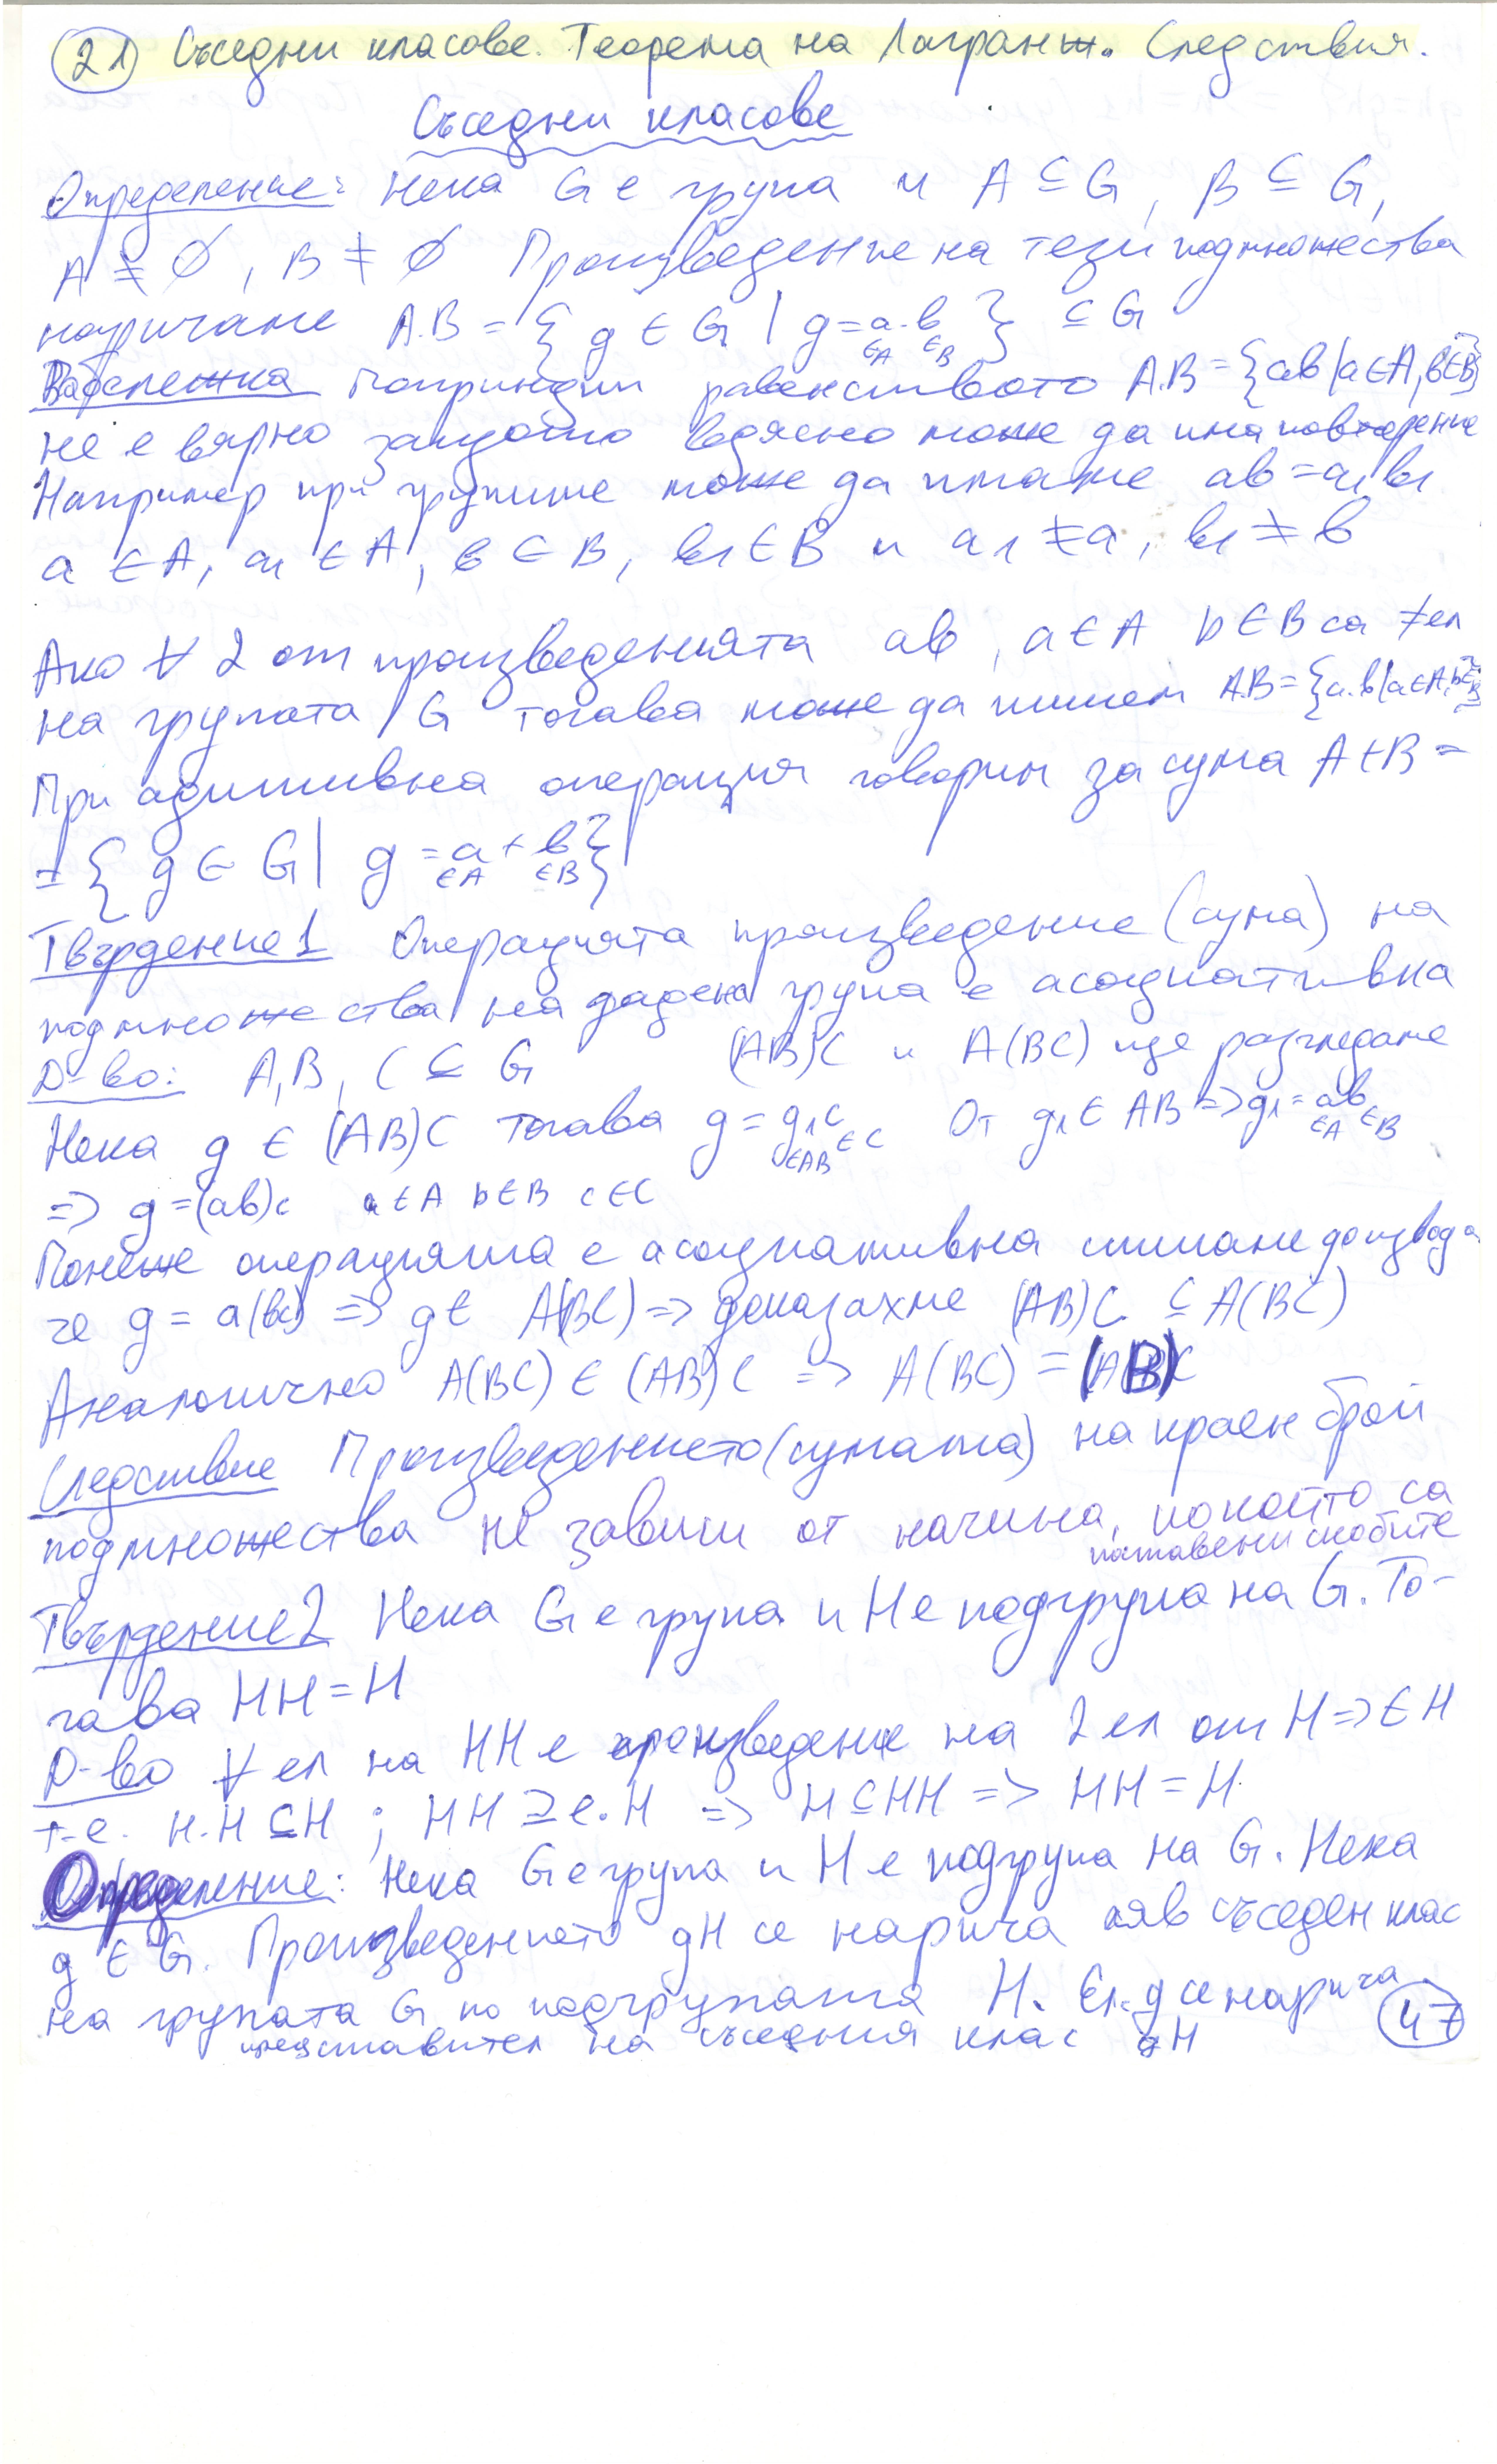 21 Съседни класове. Теорема на Лагранж. Следствия.
Съседни класове
Определение: Нека G е група и A ⊆ G, B ⊆ G,
A ≠ ∅, B ≠ ∅ Произведение на тези подмножества
наричаме A.B = { g ∈ G | g = a . b } ⊆ G
∈A ∈B
Забележка По принцип равенството A.B = {ab | a∈A, b∈B}
не е вярно защото вдясно може да има повторение
Например при групите може да имаме ab = a1b1
a ∈ A, a1 ∈ A, b ∈ B, b1 ∈ B и a1 ≠ a, b1 ≠ b
Ако ∀ 2 от произведенията ab, a ∈ A b ∈ B са ≠ ел
на групата G тогава може да пишем A.B = {a.b | a∈A, b∈B}
При адитивна операция говорим за сума A+B =
= { g ∈ G | g = a + b }
∈A ∈B
Твърдение 1 Операцията произведение (сума) на
подмножества на дадена група е асоциативна
Д-во: A, B, C ⊆ G (AB)C и A(BC) ще разгледаме
Нека g ∈ (AB)C тогава g = g1c От g1 ∈ AB => g1 = ab
∈AB ∈C ∈A ∈B
=> g = (ab)c a ∈ A b ∈ B c ∈ C
Понеже операцията е асоциативна стигаме до извода
че g = a(bc) => g ∈ A(BC) => доказахме (AB)C ⊆ A(BC)
Аналогично A(BC) ∈ (AB)C => A(BC) = (AB)C
Следствие Произведението (сумата) на краен брой
подмножества не зависи от начина, по който са
поставени скобите
Твърдение 2 Нека G е група и H е подгрупа на G. То-
гава HH = H
Д-во ∀ ел на HH е произведение на 2 ел от H => ∈ H
т.е. H.H ⊆ H ; HH ⊇ e.H => H ⊆ HH => HH = H.
Определение: Нека G е група и H е подгрупа на G. Нека
g ∈ G. Произведението gH се нарича ляв съседен клас
на групата G по подгрупата H. Ел. g се нарича
представител на съседния клас gH
47